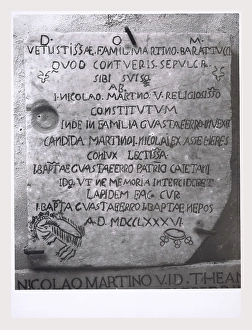 D. O. M.
VETUSTISSÆ FAMIL MARTINO
QUOD CONTVERIS SEPVLCR
SIBI SVISQ
AB
I. NICOLAO MARTNO V. RELIGIOSISSO
CONSTITVTVM
INDE IN FAMILIA GVASTAFERRO
CANDIDA MARTINO NICOLAI EX ASSE HERES
CONIVX LECTISSA
I. BAPTAE GVASTAFERRO PATRIC CAIETANI
IDQ VT NE MEMORIA INTERCIDERET
LAPIDEM FAC CVR
I. BAPTA GVASTAFERRO I. BAPTAE NEPOS
A. D. MDCCLXXXVI
NICOLAO MARTINO V.I.D. THEAN